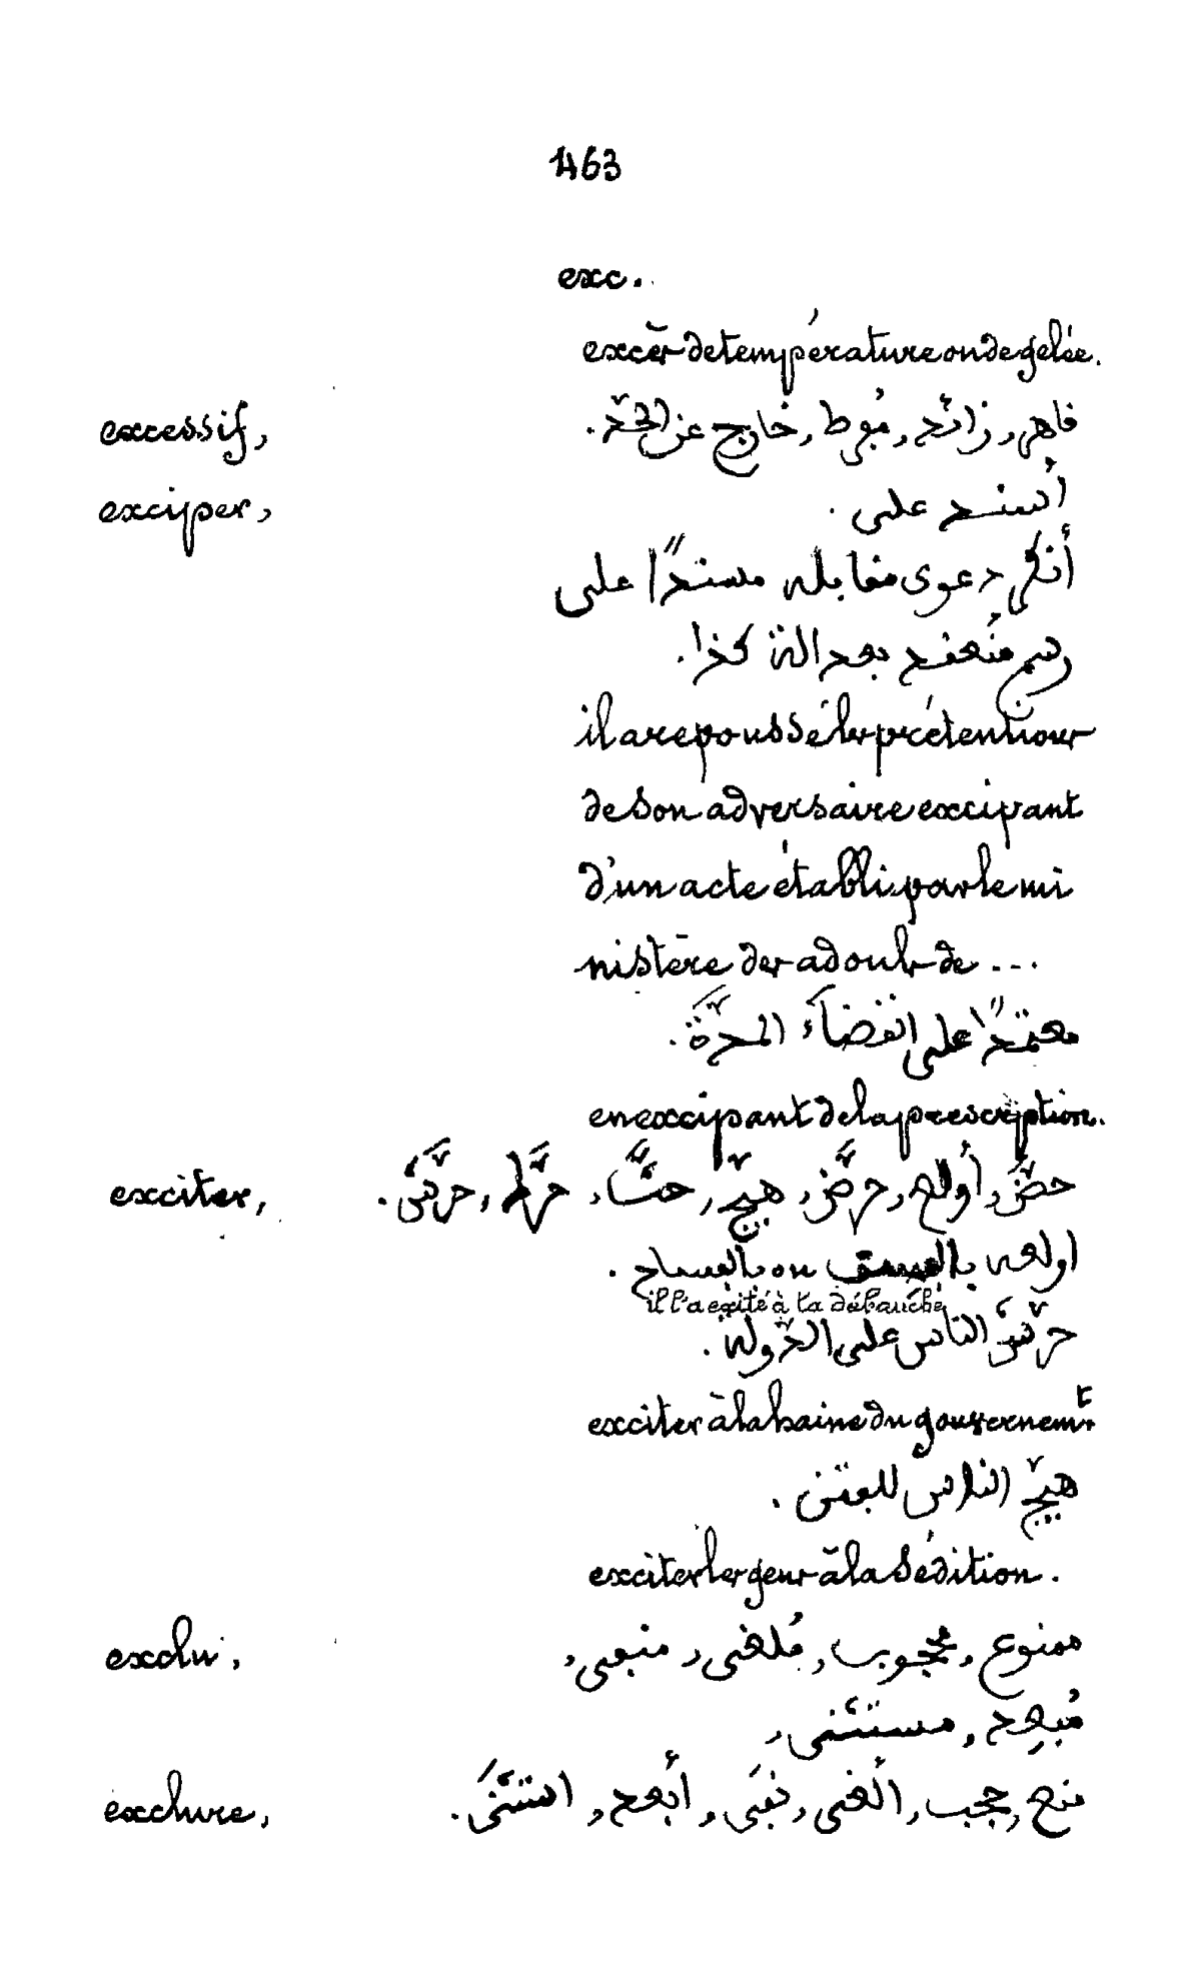 463
exc.
excès de température ou de gelée.
excessif, قاهر, زائد, مُفرط, خارج عن الحدّ.
exciper, أُستند على.
أنكر دعوى مقابله مستندًا على
رسم مُنعقد بعدالة كذا.
il a repoussé les prétentions
de son adversaire excipant
d'un acte établi par le mi
nistère des adouls de ...
معتمدًا على انقضاء المدّة.
en excipant de la prescription.
exciter, حضّ, أولع, حرّض, هيّج, حثّ, حرّش.
اولعه بالفسق ou بالفساد.
il l'a exité à la débauche
حرّش الناس على الدّولة.
exciter à la haine du gouvernemt.
هيّج الناس للفتن.
exciter les gens à la sédition.
exclu, ممنوع, محجوب, مُلغى, منفى,
مُبعد, مستثنى,
exclure, منع, حجب, ألغى, نفى, أبعد, استثنى.